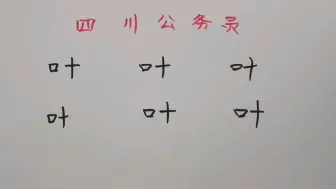 四川公务员
叶 叶 叶
叶 叶 叶